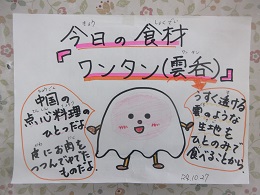 今日の食材
きょう
しょくざい
『ワンタン(雲呑)』
中国の
点心料理の
ひとつだよ。
皮にお肉を
つつんでゆでた
ものだよ。
うすく透ける
雲のような
生地を
ひとのみで
食べることから。
28.10.27